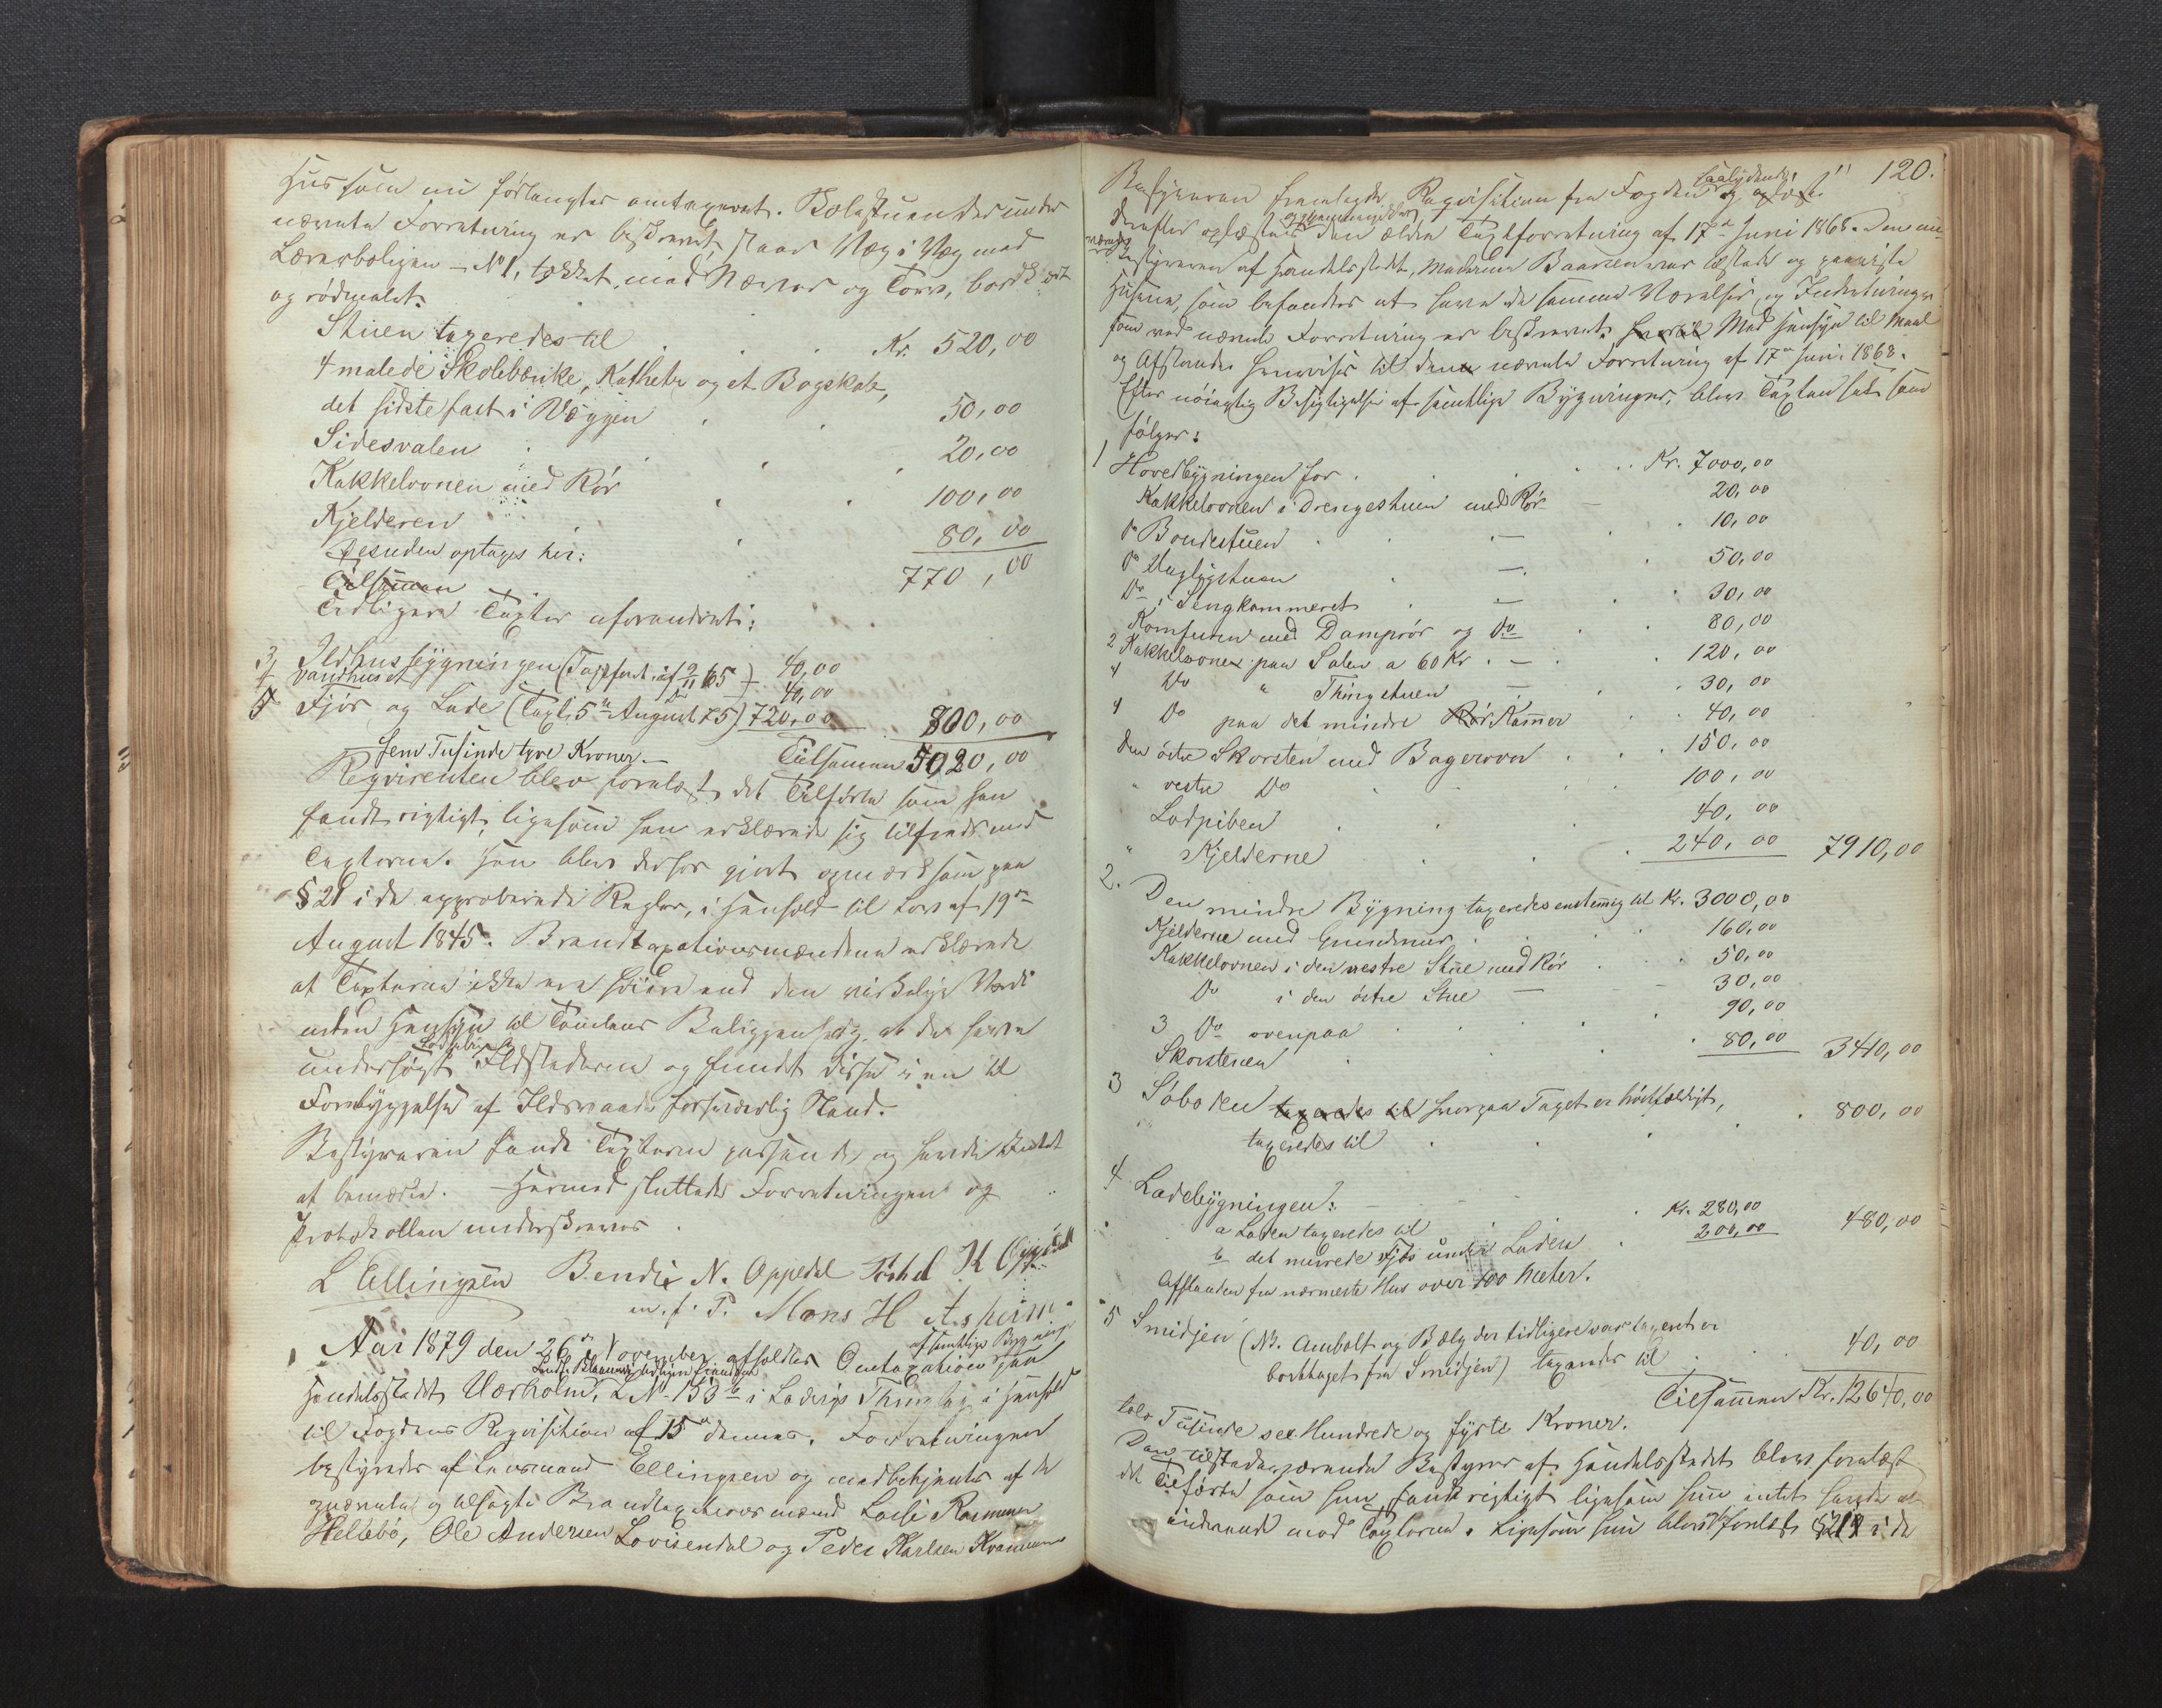 Hus som nu forlangtes omtaxeret. Skolestuen der under
nævnte Forretning er beskrevet staar Væg i Væg med
Lærerboligen - No 1, tækket med Næver og Torv, bordklædt
og rødmalet.
Stuen taxeredes til Kr. 520,00
4 malede Skolebænke, Katheter og et Bogskab,
det sidste fast i Væggen 50,00
Sidesvalen 20,00
Kakkelovnen med Rør 100,00
Kjelderen 80,00
Desuden optages her:
Tilsammen 770,00
Tidligere Taxter uforandret:
3 Ildhusbygningen (Taxtforr. af 2/11 65) 40,00
4 Vandhuset Do 40,00
5 Fjøs og Lade (Taxt 5te August 75) 720,00 800,00
fem Tusinde tyve Kroner.- Tilsammen 5020,00
Reqvirenten blev forelæst det Tilførte som han
fandt rigtigt, ligesom han erklærede sig tilfreds med
Taxterne. Han blev derfor gjort opmærksom paa
§ 21 i de approberede Regler, i Henhold til Lov af 19de
August 1845. Brandtaxationsmændene erklærede
at Taxterne ikke ere høiere end den virkelige Værdi
uden Hensyn til Tomtens Beliggenhed, at de have
undersøgt Ildstederne og fundet disse i en til
Forebyggelse af Ildsvaade forsvarlig Stand.
Bestyreren fandt Taxterne passende og havde Intet
at bemærke. - Hermed sluttedes Forretningen og
Protokollen underskreves.
L Ellingsen Bendix N. Oppedal
m. f. P. Mons H
Aar 1879 den 26de November afholdtes Omtaxation paa
af samtlige Bygninger
Handelsstedet Værholm, L No 153 b i Ladvigs Thinglag i Henhold
til Fogdens Reqvisition af 15de dennes. Forretningen
bestyredes af Lensmand Ellingsen og medbetjentes af de
opnævnte og tilsagte Brandtaxationsmænd Losse Rasmusen
Hellebø, Ole Andersen Lovisendal og Peder Karlsen Kvammen
120.
Bestyreren fremlagde Reqvisition fra Fogden saalydende:
derefter oplæstes og gjennemgikkes den ældre Taxtforretning af 17de Juni 1868. Den nu-
værende Bestyrer af Handelsstedet, Madame Baarsen var tilstede og paaviste
Husene, som befandtes at have de samme Værelser og Indretninger
som ved nævnte Forretning er beskrevet. Med Hensyn til Maal
og Afstande henvises til den nævnte Forretning af 17de Juni 1868.
Efter nøiagtig Besigtigelse af samtlige Bygninger, blev Taxten sat som
følger:
1 Hovedbygningen for Kr. 7000,00
Kakkelovnen i Drengestuen med Rør 20,00
Do Bondestuen — 10,00
Do Dagligstuen — 50,00
Do i Sengkammeret — 30,00
Komfuren med Damprør og Do 80,00
2 Kakkelovne paa Salen a 60 Kr. — 120,00
1 Do " Thingstuen — 30,00
1 Do paa det mindre Kammer 40,00
den østre Skorsten med Bagerovn 150,00
" vestre Do 100,00
Ladpiben 40,00
" Kjelderne 240,00 7910,00
2. Den mindre Bygning taxeredes enstemmig til Kr. 3000,00
Kjelderne med Grundmur 160,00
Kakkelovnen i den vestre Stue med Rør 50,00
Do i den østre Stue — 30,00
3 Do ovenpaa 90,00
Skorstenen 80,00 3410,00
3 Søboden taxeredes til hvorpaa Taget er brøstfældigt,
taxeredes til 800,00
4 Ladebygningen:
a Laden taxeredes til Kr. 280,00
b det murede Fjøs under Laden 200,00 480,00
Afstanden fra nærmeste Hus over 100 Meter.
5 Smidjen (NB. Ambolt og Bælg der tidligere var taxeret er
borttaget fra Smidjen) taxeredes til 40,00
Tilsammen Kr. 12640,00
tolv Tusinde sex Hundrede og fyrti Kroner.
Den tilstedeværende Bestyrer af Handelsstedet blev forelæst
det Tilførte som hun fandt rigtigt ligesom hun intet havde at
indvende mod Taxterne. Ligesom hun blev forelæst § 21 i de